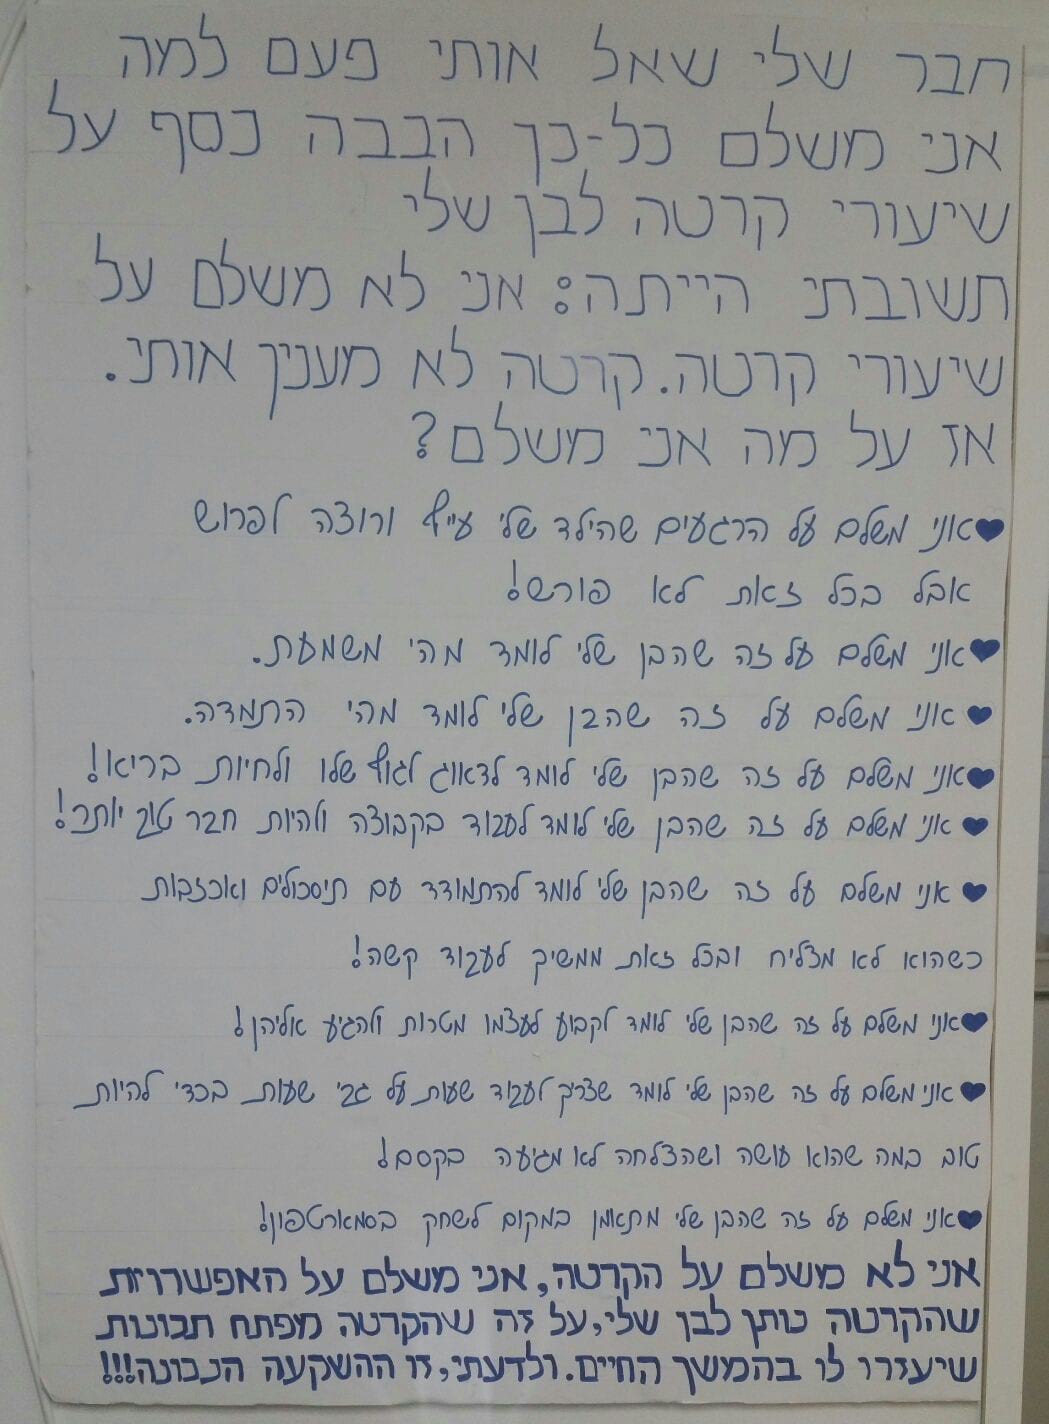 חבר שלי שאל אותי פעם למה
אני משלם כל-כך הבבה כסף על
שיעורי קרטה לבן שלי
תשובתי הייתה: אני לא משלם על
שיעורי קרטה. קרטה לא מעניך אותי.
אז על מה אני משלם?
♥אני משלם על הרגעים שהילד שלי עייף ורוצה לפרוש
אבל בכל זאת לא פורש!
♥אני משלם על זה שהבן שלי לומד מהי משמעת.
♥אני משלם על זה שהבן שלי לומד מהי התמדה.
♥אני משלם על זה שהבן שלי לומד לדאוג לגוף שלו ולחיות בריא!
♥אני משלם על זה שהבן שלי לומד לעבוד בקבוצה ולהיות חבר טוב יותר!
♥אני משלם על זה שהבן שלי לומד להתמודד עם תיסכולים ואכזבות
כשהוא לא מצליח ובכל זאת ממשיך לעבוד קשה!
♥אני משלם על זה שהבן שלי לומד לקבוע לעצמו מטרות ולהגיע אליהן!
♥אני משלם על זה שהבן שלי לומד שצריך לעבוד שעות על גבי שעות בכדי להיות
טוב במה שהוא עושה ושהצלחה לא מגיעה בקסם!
♥אני משלם על זה שהבן שלי מתאמן במקום לשחק בסמארטפון!
אני לא משלם על הקרטה, אני משלם על האפשרויות
שהקרטה נותן לבן שלי, על זה שהקרטה מפתח תכונות
שיעזרו לו בהמשך החיים. ולדעתי, זו ההשקעה הנכונה!!!